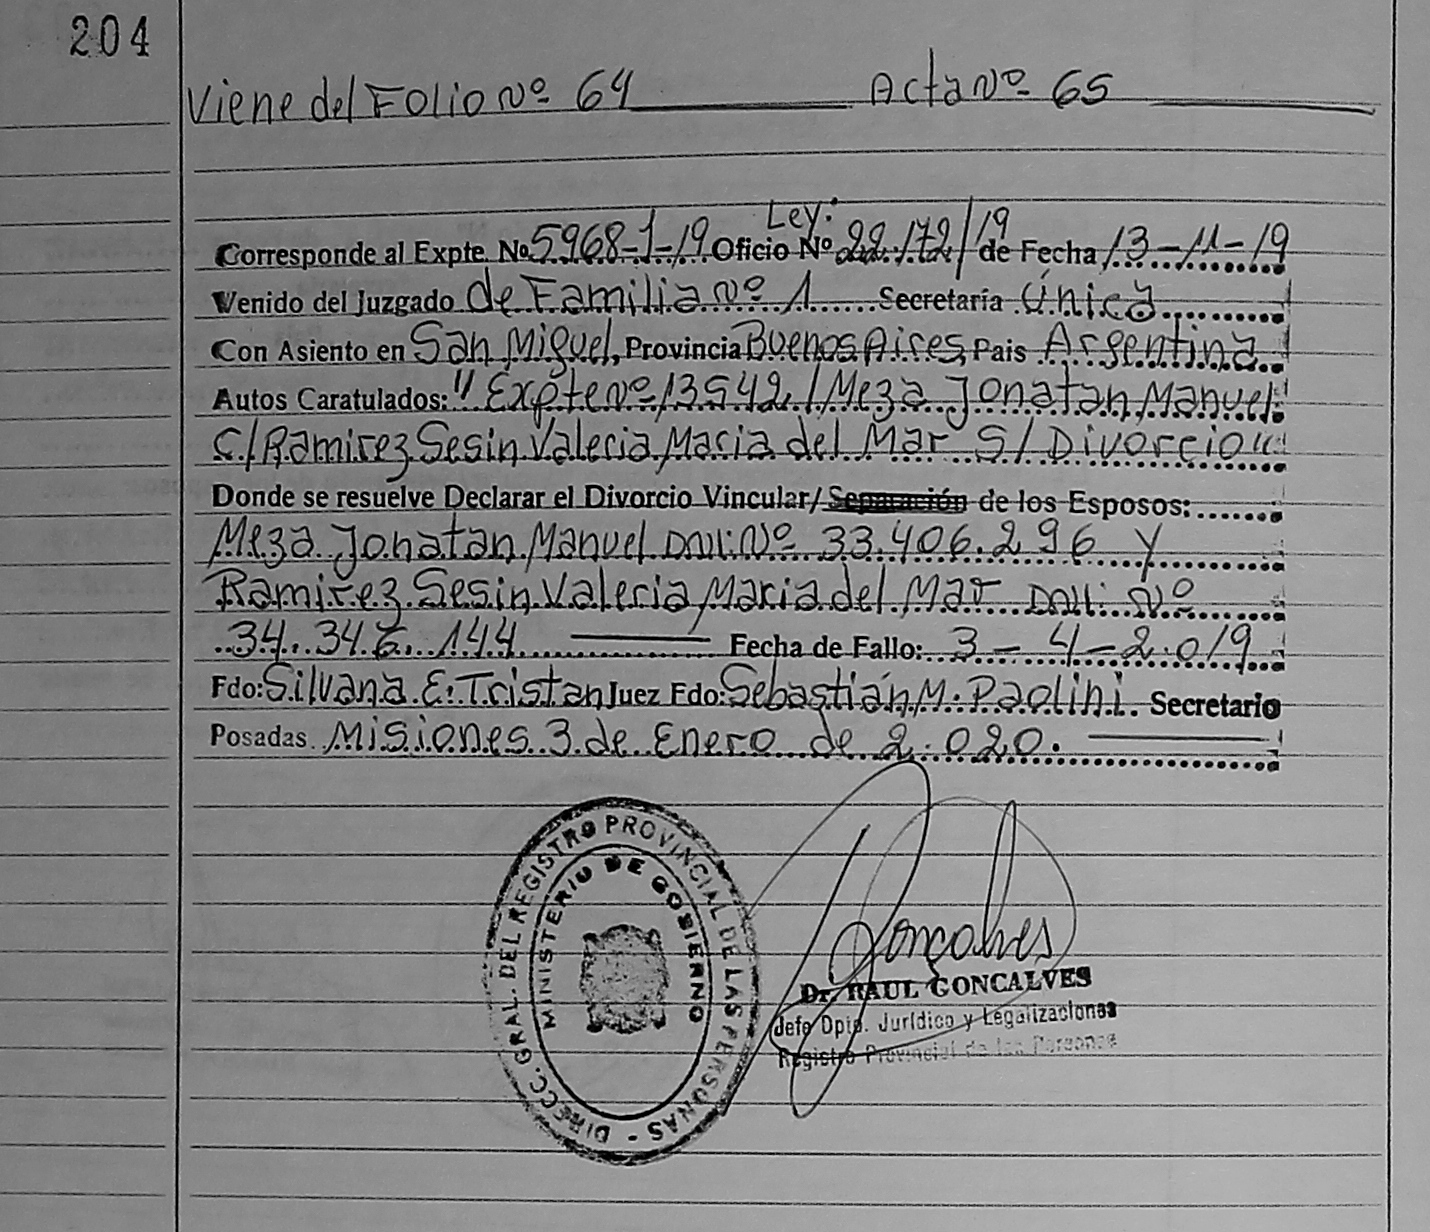 204
Viene del Folio Nº 64 Acta Nº 65
Ley:
Corresponde al Expte Nº 5968-1-19 Oficio Nº 22.172/19 de Fecha 13-11-19
Venido del Juzgado de Familia Nº 1 Secretaría Única
Con Asiento en San Miguel, Provincia Buenos Aires, Pais Argentina
Autos Caratulados: "Expte Nº 13542/Meza Jonatan Manuel
C/Ramirez Sesin Valeria Maria del Mar S/Divorcio"
Donde se resuelve Declarar el Divorcio Vincular/Separación de los Esposos:
Meza Jonatan Manuel DNI: Nº 33.406.296 y
Ramirez Sesin Valeria Maria del Mar DNI: Nº
34.346.144 Fecha de Fallo: 3-4-2.019
Fdo: Silvana E. Tristan Juez Fdo: Sebastián M. Paolini. Secretario
Posadas Misiones 3 de Enero de 2.020.
DIRECC. GRAL. DEL REGISTRO PROVINCIAL DE LAS PERSONAS -
MINISTERIO DE GOBIERNO
Goncalves
Dr. RAUL GONCALVES
Jefe Dpto. Jurídico y Legalizaciones
Registro Provincial de las Personas